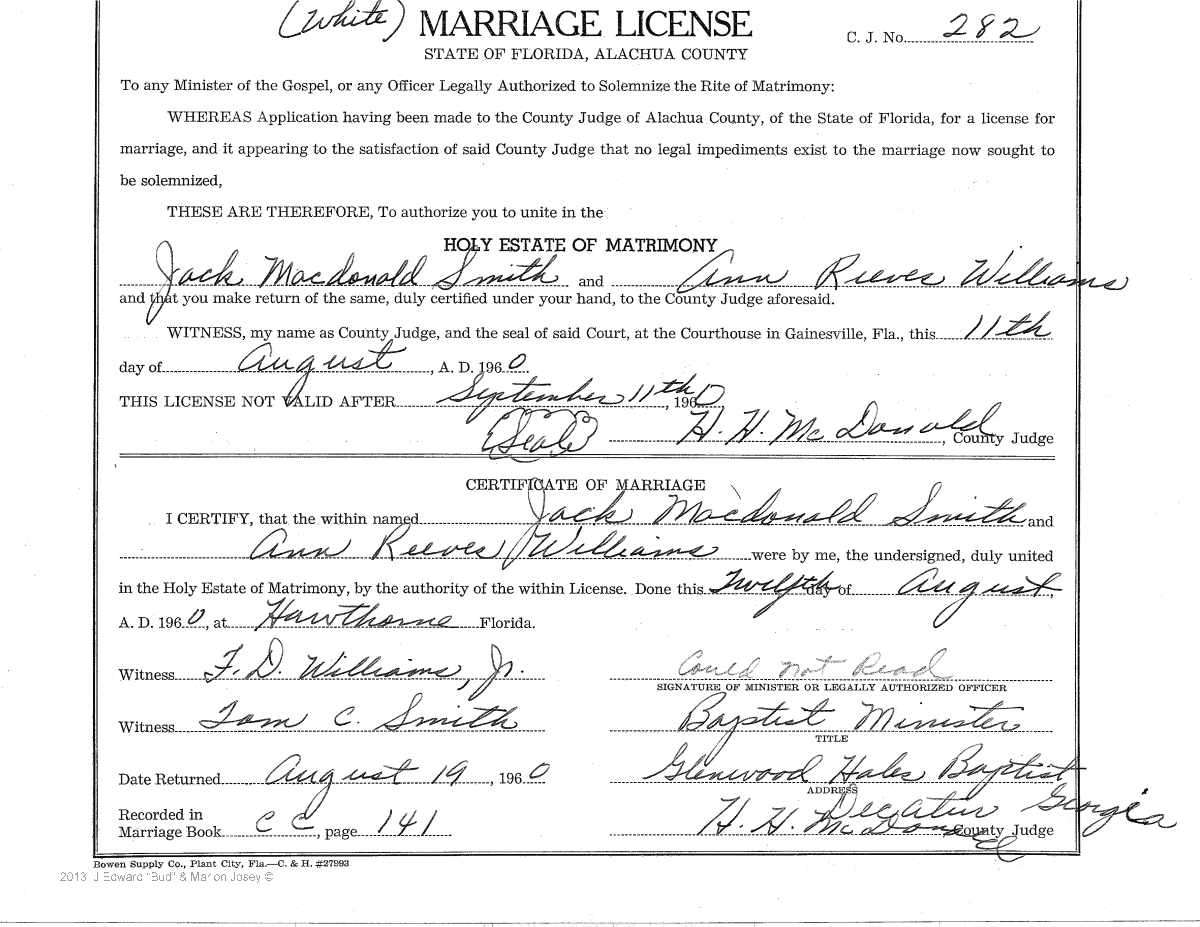 (White) MARRIAGE LICENSE C. J. No. 282
STATE OF FLORIDA, ALACHUA COUNTY
To any Minister of the Gospel, or any Officer Legally Authorized to Solemnize the Rite of Matrimony:
WHEREAS Application having been made to the County Judge of Alachua County, of the State of Florida, for a license for
marriage, and it appearing to the satisfaction of said County Judge that no legal impediments exist to the marriage now sought to
be solemnized,
THESE ARE THEREFORE, To authorize you to unite in the
HOLY ESTATE OF MATRIMONY
Jack Macdonald Smith and Ann Reeves Williams
and that you make return of the same, duly certified under your hand, to the County Judge aforesaid.
WITNESS, my name as County Judge, and the seal of said Court, at the Courthouse in Gainesville, Fla., this 11th
day of August, A. D. 1960.
THIS LICENSE NOT VALID AFTER September 11th, 1960
(Seal) H. H. McDonald, County Judge
CERTIFICATE OF MARRIAGE
I CERTIFY, that the within named Jack Macdonald Smith and
Ann Reeves Williams were by me, the undersigned, duly united
in the Holy Estate of Matrimony, by the authority of the within License. Done this Twelfth day of August,
A. D. 1960, at Hawthorne Florida.
Witness F. D. Williams, Jr. Could not Read
SIGNATURE OF MINISTER OR LEGALLY AUTHORIZED OFFICER
Witness Tom C. Smith Baptist Minister
TITLE
Date Returned August 19, 1960 Glenwood Hales Baptist
ADDRESS
Decatur Georgia
Recorded in
Marriage Book CC, page 141 H. H. McDonald County Judge
Bowen Supply Co., Plant City, Fla.—C. & H. #27993
2013 J Edward "Bud" & Marion Josey ©